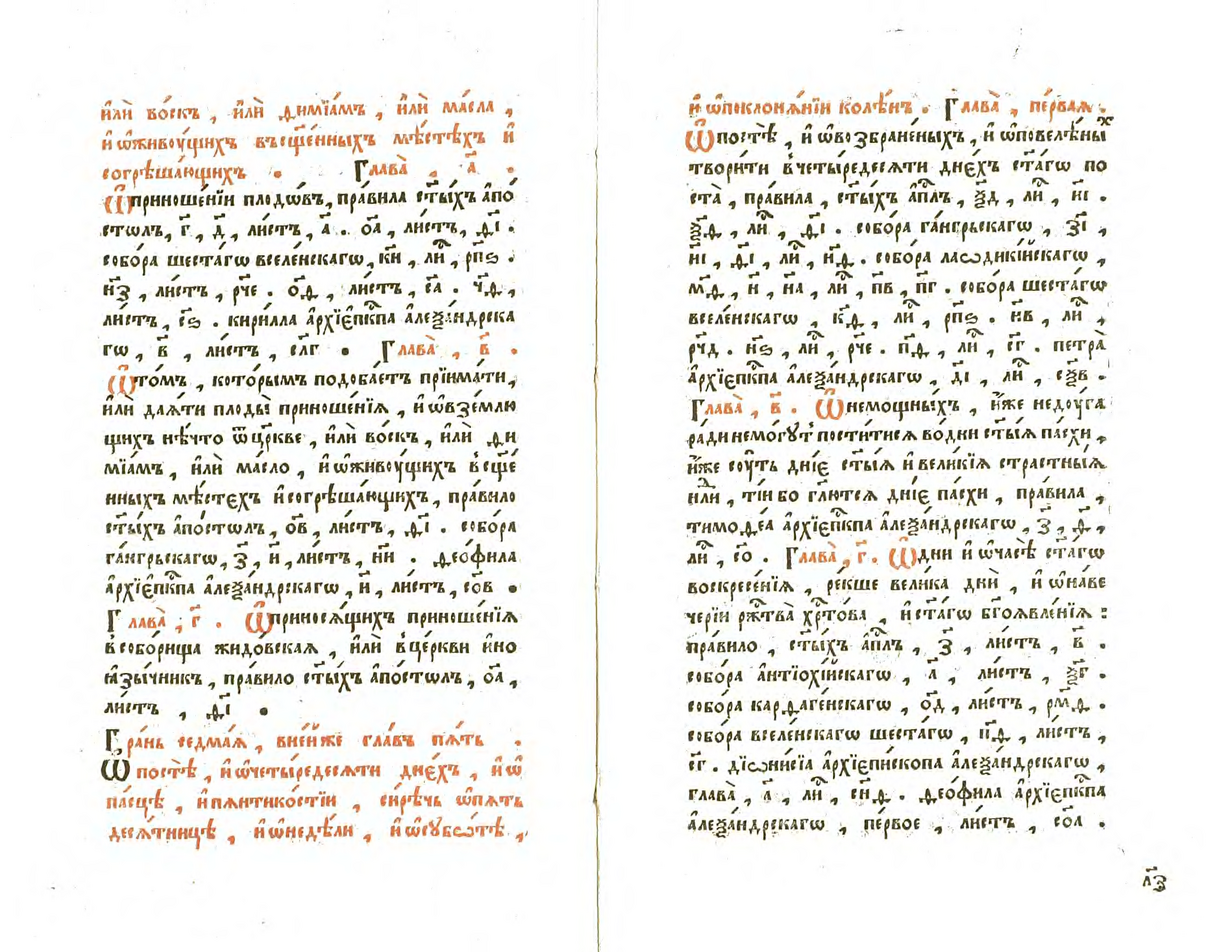 и҆лѝ во́скъ , и҆лѝ ѳимїа́мъ , и҆лѝ ма́сла ,
и҆ ѡ҆живꙋ́щихъ въсщ҃е́нныхъ мѣ́стѣхъ и҆
согрѣша́ющихъ . Глава̀ , а҃ .
Ѡ҆приноше́нїи плодѡ́въ, пра́вила ст҃ы́хъ а҆по́
столъ, г҃ , д҃ , ли́стъ , а҃ . о҃а , ли́стъ , ѳ҃і .
собо́ра шеста́гѡ вселе́нскагѡ , к҃и , ли́ , рп҃ѕ .
н҃з , ли́стъ , рч҃е . о҃ѳ , ли́стъ , с҃а . ч҃ѳ ,
ли́стъ , с҃ѕ . кири́лла а҆рхїє҆пкⷭ҇па а҆леѯа́ндрска
гѡ , в҃ , ли́стъ , сл҃г . Глава̀ , в҃ .
Ѡ҆то́мъ , кото́рымъ подоба́етъ прїима́ти ,
и҆лѝ дая́ти плоды̀ приноше́нїѧ , и҆ ѡ҆взе́млю
щихъ нѣ́что ѿ цр҃кве , и҆лѝ во́скъ , и҆лѝ ѳи
мїа́мъ , и҆лѝ ма́сло , и҆ ѡ҆живꙋ́щихъ всщ҃е́
нныхъ мѣ́стехъ и҆согрѣша́ющихъ , пра́вило
ст҃ы́хъ а҆по́столъ , о҃в , ли́стъ , ѳ҃і . собо́ра
га́нгрьскагѡ , з҃ , и҃ , ли́стъ , н҃и . ѳео́фила
а҆рхїє҆пкⷭ҇па а҆леѯа́ндрскагѡ , и҃ , ли́стъ , со҃в .
Глава̀ , г҃ . Ѡ҆принося́щихъ приноше́нїѧ
всобо́рища жидо́вская , и҆лѝ вце́ркви и҆но
ꙗ҆зы́чникъ , пра́вило ст҃ы́хъ а҆по́столъ , о҃а ,
ли́стъ , ѳ҃і .
Гра́нь седма́ѧ , вне́йже гла́въ пѧ́ть .
Ѡ҆ постѣ̀ , и҆ ѡ҆четы́редесѧти дне́хъ , и҆ ѡ҆
па́сцѣ , и҆ пѧнтико́стїи , си́рѣчь ѡ҆пѧть
десѧ́тницѣ , и҆ ѡ҆недѣ́ли , и҆ ѡ҆сꙋбѡ́тѣ ,
и҆ ѡ҆поклоня́нїи колѣ́нъ . Глава̀ , пе́рвая .
Ѡ҆постѣ̀ , и҆ ѡ҆возбране́ныхъ , и҆ ѡ҆повелѣ́ныⷯ
твори́ти вчеты́редесѧти дне́хъ ст҃а́гѡ по
ста̀ , пра́вила , ст҃ы́хъ а҆пⷭ҇лъ , ѯ҃д , ли́ , и҃і .
ѯ҃ѳ , ли́ , ѳ҃і . собо́ра га́нгрьскагѡ , з҃і ,
и҃і , ѳ҃і , ли́ , н҃ѳ . собо́ра лаѡдикі́йскагѡ ,
м҃ѳ , н҃ , н҃а , ли́ , п҃в , п҃г . собо́ра шеста́гѡ
вселе́нскагѡ , к҃ѳ , ли́ , рп҃ѕ . н҃в , ли́ ,
рч҃д . н҃ѕ , ли́ , рч҃е . п҃ѳ , ли́ , с҃г . петра̀
а҆рхїє҆пкⷭ҇па а҆леѯа́ндрскагѡ , д҃і , ли́ , сѯ҃в .
Глава̀ , в҃ . Ѡ҆немощны́хъ , и҆́же недꙋ́га
ра́ди немо́гꙋтъ пости́тисѧ во́дни ст҃ы́ѧ па́схи ,
и҆́же сꙋ́ть дні́є ст҃ы́ѧ и҆ вели́кїѧ стра́стныѧ
н҃ли , ті́и бо гл҃ютсѧ дні́є па́схи , пра́вила ,
тимоѳе́а а҆рхїє҆пкⷭ҇па а҆леѯа́ндрскагѡ , з҃ , ѳ҃ ,
ли́ , с҃о . Глава̀ , г҃ . Ѡ҆дни и҆ ѡ҆ча́сѣ ст҃а́гѡ
воскресе́нїѧ , ре́кше вели́ка днѝ , и҆ ѡ҆наве
че́рїи ржⷭ҇тва̀ хрⷭ҇то́ва , и҆ ст҃а́гѡ бг҃оявле́нїѧ :
пра́вило , ст҃ы́хъ а҆пⷭ҇лъ , з҃ , ли́стъ , в҃ .
собо́ра а҆нтїохі́йскагѡ , а҃ , ли́стъ , ѯ҃г .
собо́ра карѳаге́нскагѡ , о҃д , ли́стъ , рм҃ѳ .
собо́ра вселе́нскагѡ шеста́гѡ , п҃ѳ , ли́стъ ,
с҃г . дїѡни́сїа а҆рхїє҆пи́скопа а҆леѯа́ндрскагѡ ,
глава̀ , а҃ , ли́ , сн҃ѳ . ѳео́фила а҆рхїє҆пкⷭ҇па
а҆леѯа́ндрскагѡ , пе́рвое , ли́стъ , со҃а .
л҃з